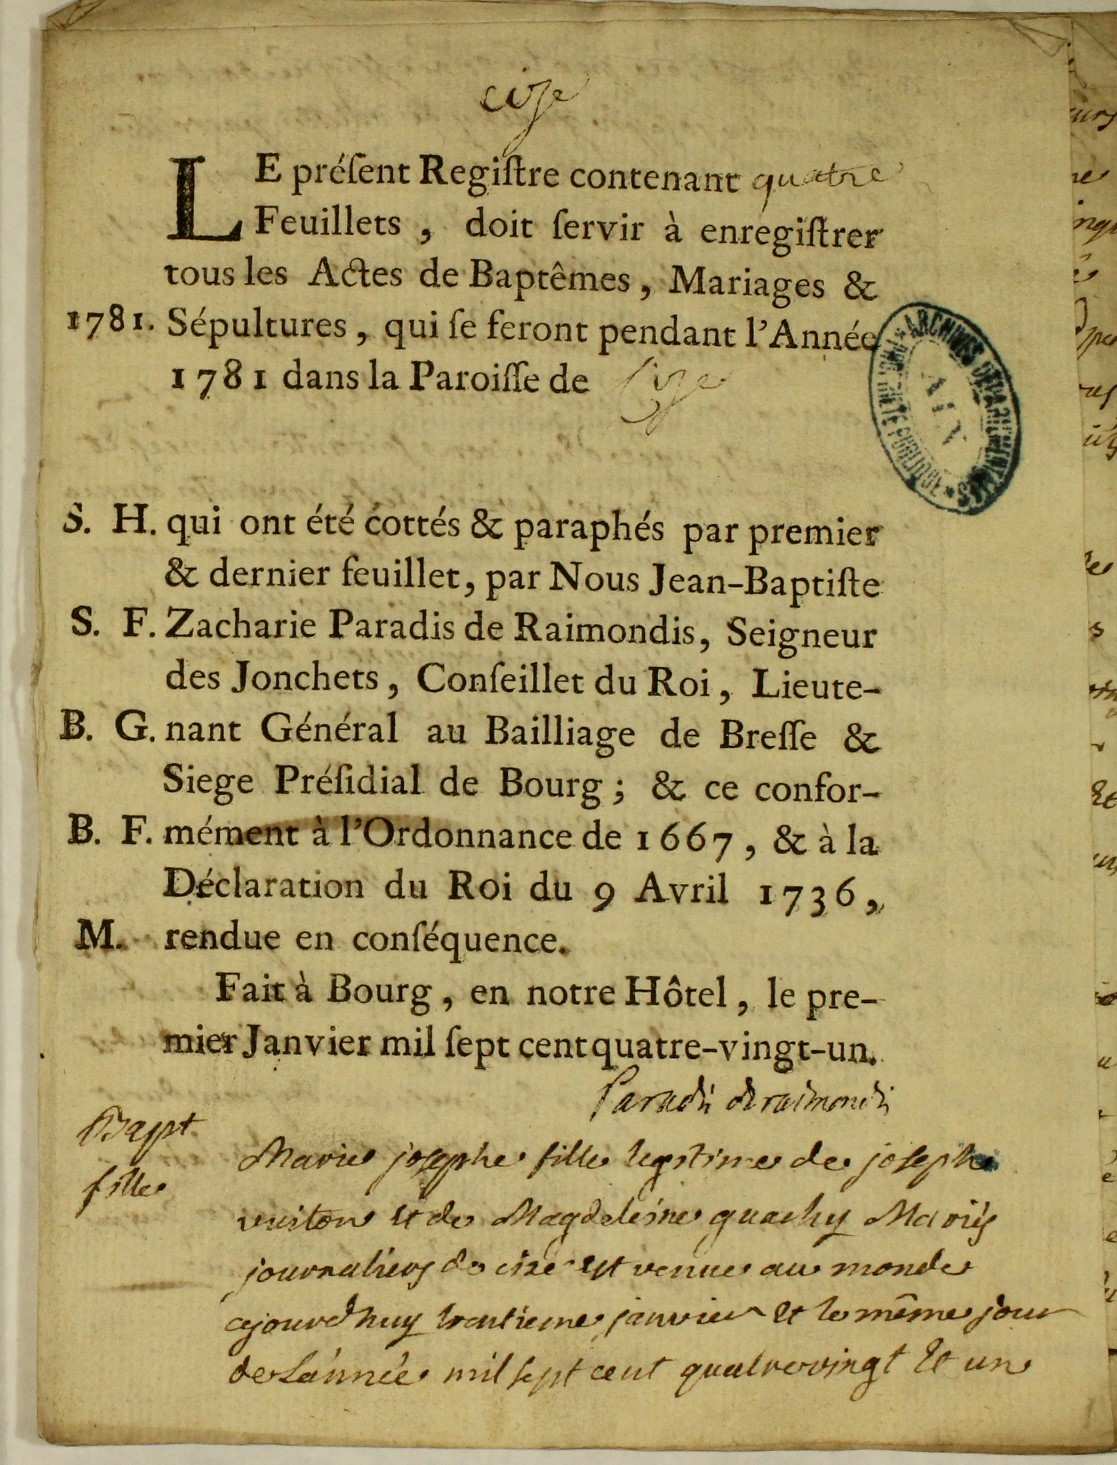 cize
LE préſent Regiſtre contenant quatre
Feuillets , doit ſervir à enregiſtrer
tous les Actes de Baptêmes , Mariages &
1781. Sépultures , qui ſe feront pendant l'Année
1781 dans la Paroiſſe de Cize
ARCHIVES DEPARTEMENTALES
AIN
S. H. qui ont été cottés & paraphés par premier
& dernier feuillet, par Nous Jean-Baptiſte
S. F. Zacharie Paradis de Raimondis, Seigneur
des Jonchets , Conſeillet du Roi , Lieute-
B. G. nant Général au Bailliage de Breſſe &
Siege Préſidial de Bourg ; & ce confor-
B. F. mément à l'Ordonnance de 1667 , & à la
Déclaration du Roi du 9 Avril 1736 ,
M. rendue en conſéquence.
Fait à Bourg , en notre Hôtel , le pre-
mier Janvier mil ſept cent quatre-vingt-un.
Paradis deraimondis
Bapt
fille
Marie josephe fille legitime de joseph
et de Magdeleine Mariés
journaliers de cize est venue au monde
janvier et le même jour
de L'année mil sept cent quatrevingt et un